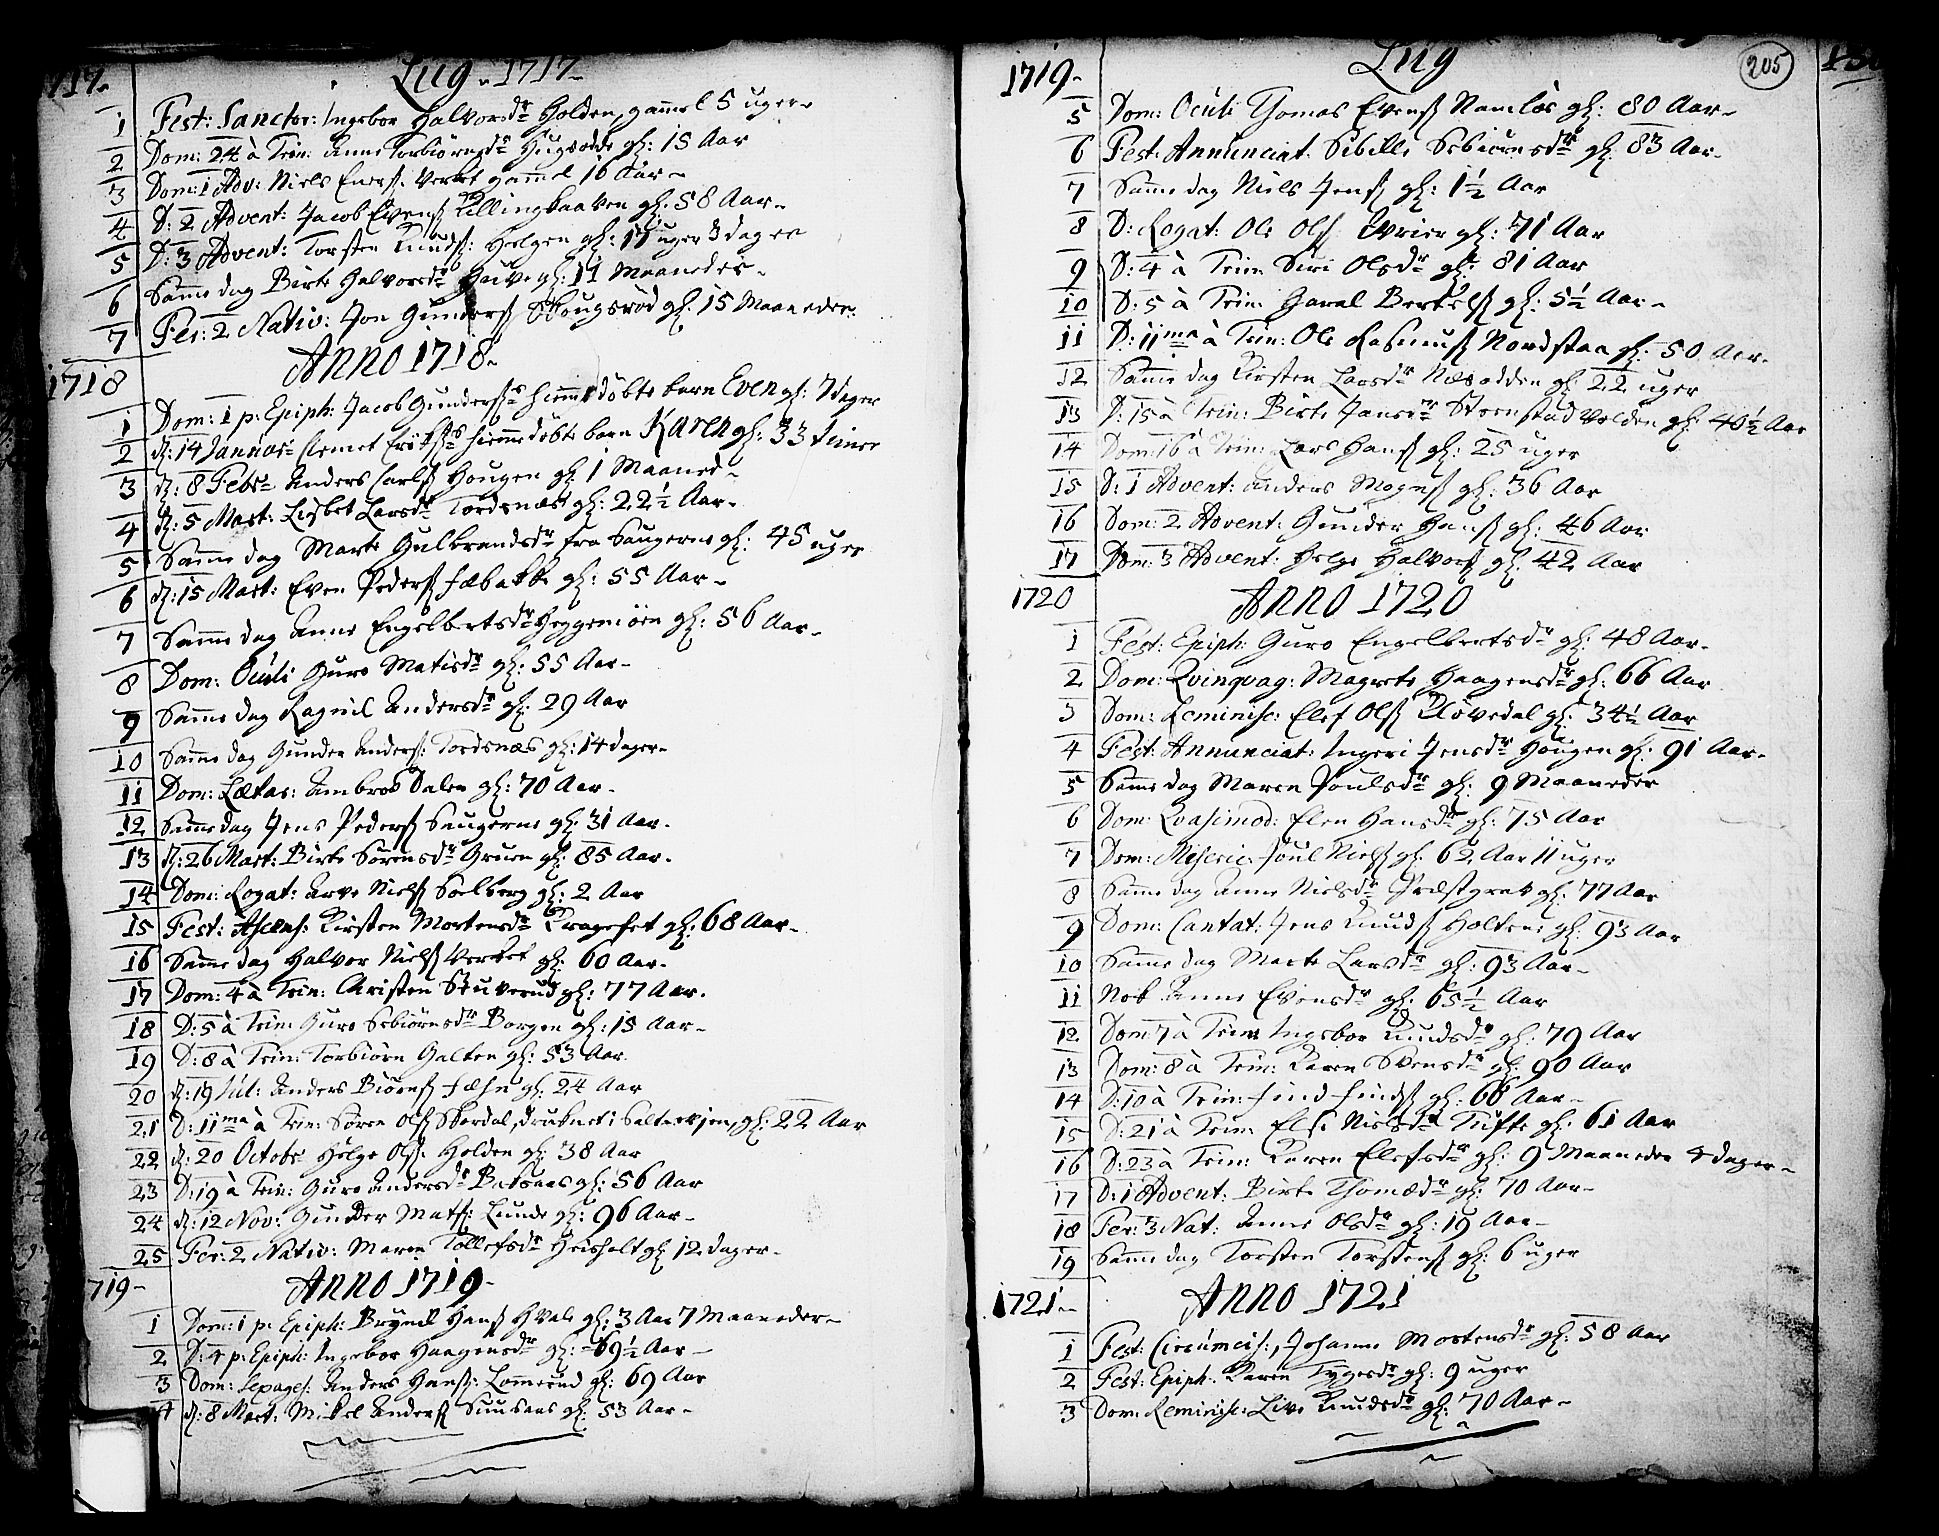 1717. Lug - 1717 -
1 Fest: Sanctor: Ingebor Halvorsdr Holden, gammel 5 uger -
2 Dom: 24 à Trin: Anne Torbiørnsdr gl: 15 Aar
3 Dom: 1 Adv: Niels Verket gammel 16 Aar -
4 D: 2 Advent: Jacob Evens gl: 58 Aar -
5 D: 3 Advent: Torsten Knuds: Helgen gl: 11 uger 3 dager
6 Samme dag Birte Halvorsdr gl: 11 Maaneder -
7 Fer: 2 Nativ: Jon Gunders Skougsrød gl: 15 Maaneder.
1718 Anno 1718 -
1 Dom: 1 p: Epiph: Jacob Gunders hiemmedøbte barn Even gl: 7 dager
2 d: 14 Januar Clemet hiemmedøbte barn Karen gl: 33 timer
3 d: 8 Febr Anders Carls Hougen gl: 1 Maaned -
4 d: 5 Mart: Lisbet Larsdr Tordsnæs gl: 22½ Aar -
5 Samme dag Marte Gulbrandsdr fra Saugerne gl: 45 uger
6 d: 15 Mart: Even Peders Fæbakke gl: 55 Aar -
7 Samme dag Anne Engelbertsdr Heggemoen gl: 56 Aar -
8 Dom: Oculi Guro Matisdr gl: 55 Aar -
9 Samme dag Ragnil Andersdr gl: 29 Aar
10 Samme dag Gunder Anders: Tordsnæs gl: 14 dager -
11 Dom: Lætar: Ambros Dalen gl: 70 Aar -
12 Samme dag Jens Peders Saugerne gl: 31 Aar -
13 d: 26 Mart: Birte Sørensdr Gruen gl: 85 Aar -
14 Dom: Rogat: Arve Niels Solberg gl: 2 Aar
15 Fest: Ascens: Kirsten Mortensdr Krageset gl: 68 Aar -
16 Samme dag Halvor Niels Verket gl: 60 Aar -
17 Dom: 4 à Trin: Christen Stuverud gl: 77 Aar.
18 D: 5 à Trin: Guro Sebiørnsdr Borgen gl: 15 Aar -
19 D: 8 à Trin: Torbiørn Galten gl: 53 Aar
20 d: 19 Jul: Anders Biørns Fæhn gl: 24 Aar
21 D: 11ma à Trin: Søren Ols Skerdal, druknet i Saltervien, gl: 22 Aar
22 d: 20 Octobr Helge Ols: Holden gl: 38 Aar
23 D: 19 à Trin: Guro Andersdr Batsaas gl: 56 Aar
24 d: 12 Nov: Gunder Mats: Lunde gl: 96 Aar -
25 Fer: 2 Nativ: Maren Tollefsdr Heisholt gl: 12 dager -
1719 - Anno 1719 -
1 Dom: 1 p: Epiph: Brynil Hans Hvale gl: 3 Aar 7 Maaneder -
2 D: 4 p: Epiph: Ingebor Haagensdr gl: 69½ Aar -
3 Dom: Sepages: Anders Hans: Lommerud gl: 69 Aar
4 d: 8 Mart: Mikel Anders gl: 53 Aar -
1719 - Lug 205
5 Dom: Oculi Thomas Evens Namløs gl: 80 Aar -
6 Fest: Annunciat: Sibille Sebiørnsdr gl: 83 Aar -
7 Samme dag Niels Jens gl: 1½ Aar
8 D: Rogat: Ole Ols gl: 71 Aar
9 D: 4 à Trin: Siri Olsdr gl: 81 Aar
10 D: 5 à Trin: Haral Bertels gl: 5½ Aar -
11 D: 11ma à Trin: Ole Rasmus Nordstaa gl: 50 Aar -
12 Samme dag Kirsten Larsdr Næsodden gl: 22 uger
13 D: 15 à Trin: Birte Jansdr Steenstad volden gl: 40½ Aar
14 Dom: 16 à Trin: Lars Hans gl: 25 uger
15 D: 1 Advent: Anders Mogens gl: 36 Aar
16 Dom: 2 Advent: Gunder Hans gl: 46 Aar
17 Dom: 3 Advent: Helge Halvors gl: 42 Aar
1720 Anno 1720
1 Fest: Epiph: Guro Engelbertsdr gl: 48 Aar -
2 Dom: Qvinqvag: Magrete Haagensdr gl: 66 Aar
3 Dom: Reminisc: Elef Ols Kløvedal gl: 34½ Aar
4 Fest: Annunciat: Ingeri Jensdr Hougen gl: 91 Aar -
5 Samme dag Maren Poulsdr gl: 9 Maaneder
6 Dom: Qvasimod: Elen Hansdr gl: 75 Aar
7 Dom: Miseric: Poul Niels gl: 62 Aar 11 uger
8 Samme dag Anne Nielsdr gl: 77 Aar
9 Dom: Cantat: Jens Knuds Holten: gl: 93 Aar
10 Samme dag Marte Larsdr gl: 93 Aar -
11 Nok Anne Evensdr gl: 65½ Aar
12 Dom: 7 à Trin: Ingebor Knudsdr gl: 79 Aar
13 Dom: 8 à Trin: Karen Svensdr gl: 90 Aar
14 D: 10 à Trin: Find Finds gl: 66 Aar -
15 D: 21 à Trin: Else Nielsdr Tufte gl: 61 Aar
16 D: 23 à Trin: Karen Elefsdr gl: 9 Maaneder 4 dager -
17 D: 1 Advent: Birte Thomædr gl: 70 Aar -
18 Fer: 3 Nat: Anne Olsdr gl: 19 Aar -
19 Samme dag Torsten Torstens gl: 6 uger
1721 - Anno 1721
1 Fest: Circumcis:, Johanne Mortensdr gl: 58 Aar
2 Fest: Epiph: Karen Tygesdr gl: 9 uger
3 Dom: Reminisc: Live Knudsdr gl: 70 Aar -